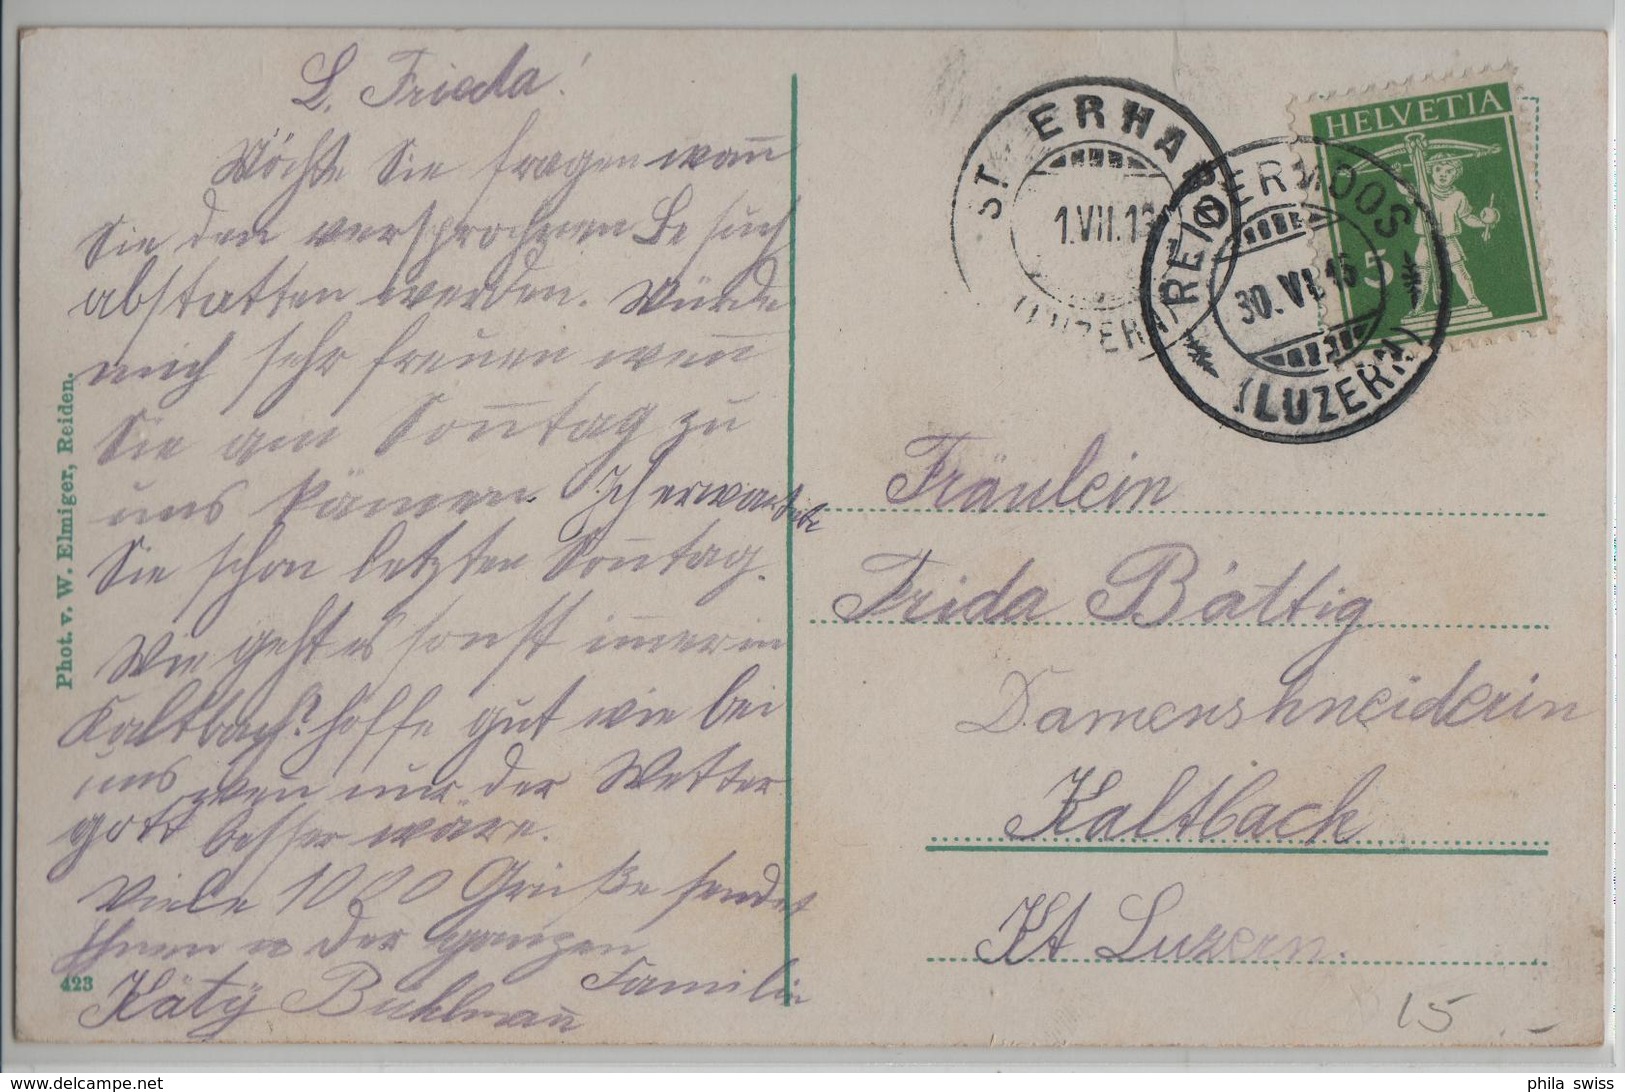 L. Frieda!
Möchte Sie fragen wan̅
Sie den versprochnen Besuch
abstatten werden. Würde
mich sehr freuen wen̅
Sie am Son̅tag zu
uns kämen. Ich erwartete
Sie schon letzten Son̅tag.
Wie geht es sonst im̅er in
Kaltbach? hoffe gut wie bei
uns, wen nur der Wetter
gott besser wäre.
Viele 1000 Grüße sendet
Ihnen u der ganzen
Familie
Käty Buhlman̅
Phot. v. W. Elmiger, Reiden.
423
ST. ERHARD
1.VII.15
(LUZERN)
REIDERMOOS
30.VI.15
(LUZERN)
HELVETIA
5
Fräulein
Frida Bättig
Damenshneiderin
Kaltbach
Kt Luzern.
15.-
phila swiss